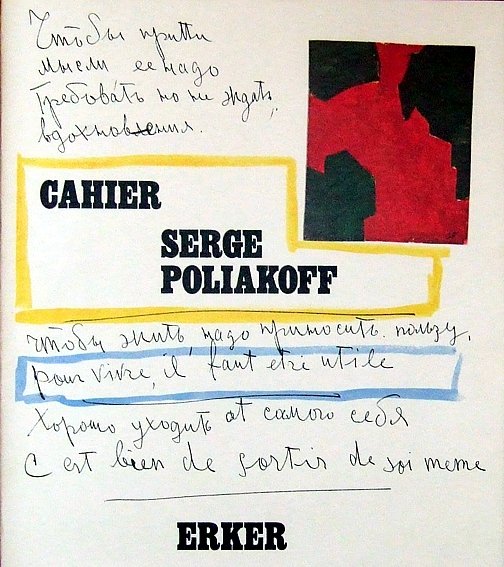 Чтобы притти
мысли ее надо
требовать но не ждать
вдохновения.
CAHIER
SERGE
POLIAKOFF
чтобы жить, надо приносить пользу,
pour vivre, il faut etre utile
Хорошо уходить от самого себя
C est bien de sortir de soi meme
ERKER